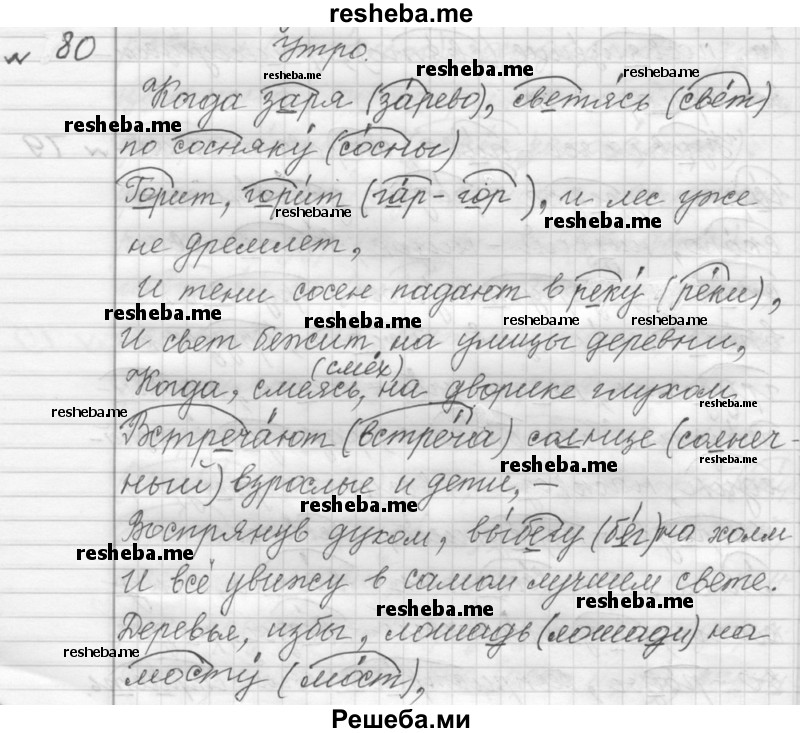 resheba.me
№ 80 Утро.
resheba.me resheba.me resheba.me
Когда заря (за́рево), светя́сь (свет)
resheba.me
по сосняку́ (со́сны)
Горит, гори́т (гар-гор), и лес уже
resheba.me resheba.me
не дремлет,
И тени сосен падают в реку́ (ре́ки),
resheba.me resheba.me resheba.me resheba.me
И свет бежит на улицы деревни,
(смех)
Когда, смеясь, на дворике глухом
resheba.me resheba.me
Встреча́ют (встре́ча) солнце (солнеч-
resheba.me resheba.me
ный) взрослые и дети, —
resheba.me
Воспрянув духом, вы́бегу (бе́г) на холм
resheba.me
И всё увижу в самом лучшем свете.
resheba.me resheba.me
Деревья, избы, лошадь (лошади) на
resheba.me
мосту́ (мо́ст),
Решеба.ми